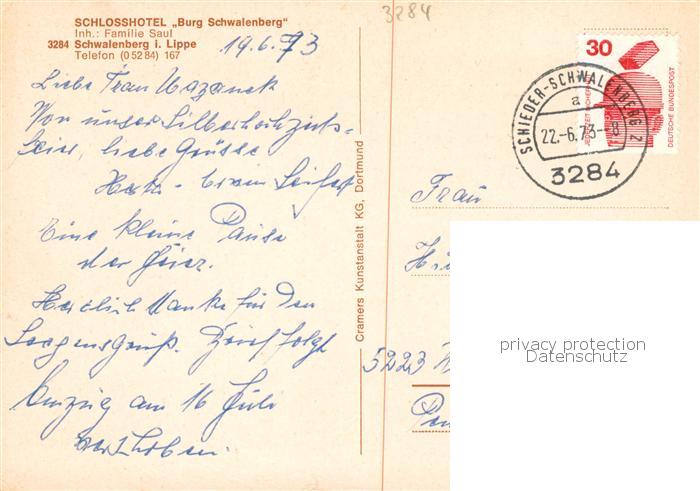 SCHLOSSHOTEL „Burg Schwalenberg"
Inh.: Familie Saul
3284 Schwalenberg i. Lippe
Telefon (0 52 84) 167
3284
19.6.73
Liebe Frau
Von unser Silberhochzeits=
feier, liebe Grüsse
Eine kleine Pause
der Feier.
Herzlich Danke für den
Segensgruß. Brief folgt
Umzug am 16 Juli
verschoben.
Cramers Kunstanstalt KG, Dortmund
30
JEDERZEIT SICHERHEIT
DEUTSCHE BUNDESPOST
SCHIEDER-SCHWALENBERG 2
a
22.-6.73--8
3284
Frau
5223
privacy protection
Datenschutz